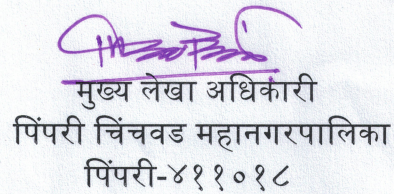 मुख्य लेखा अधिकारी
पिंपरी चिंचवड महानगरपालिका
पिंपरी-४११०१८